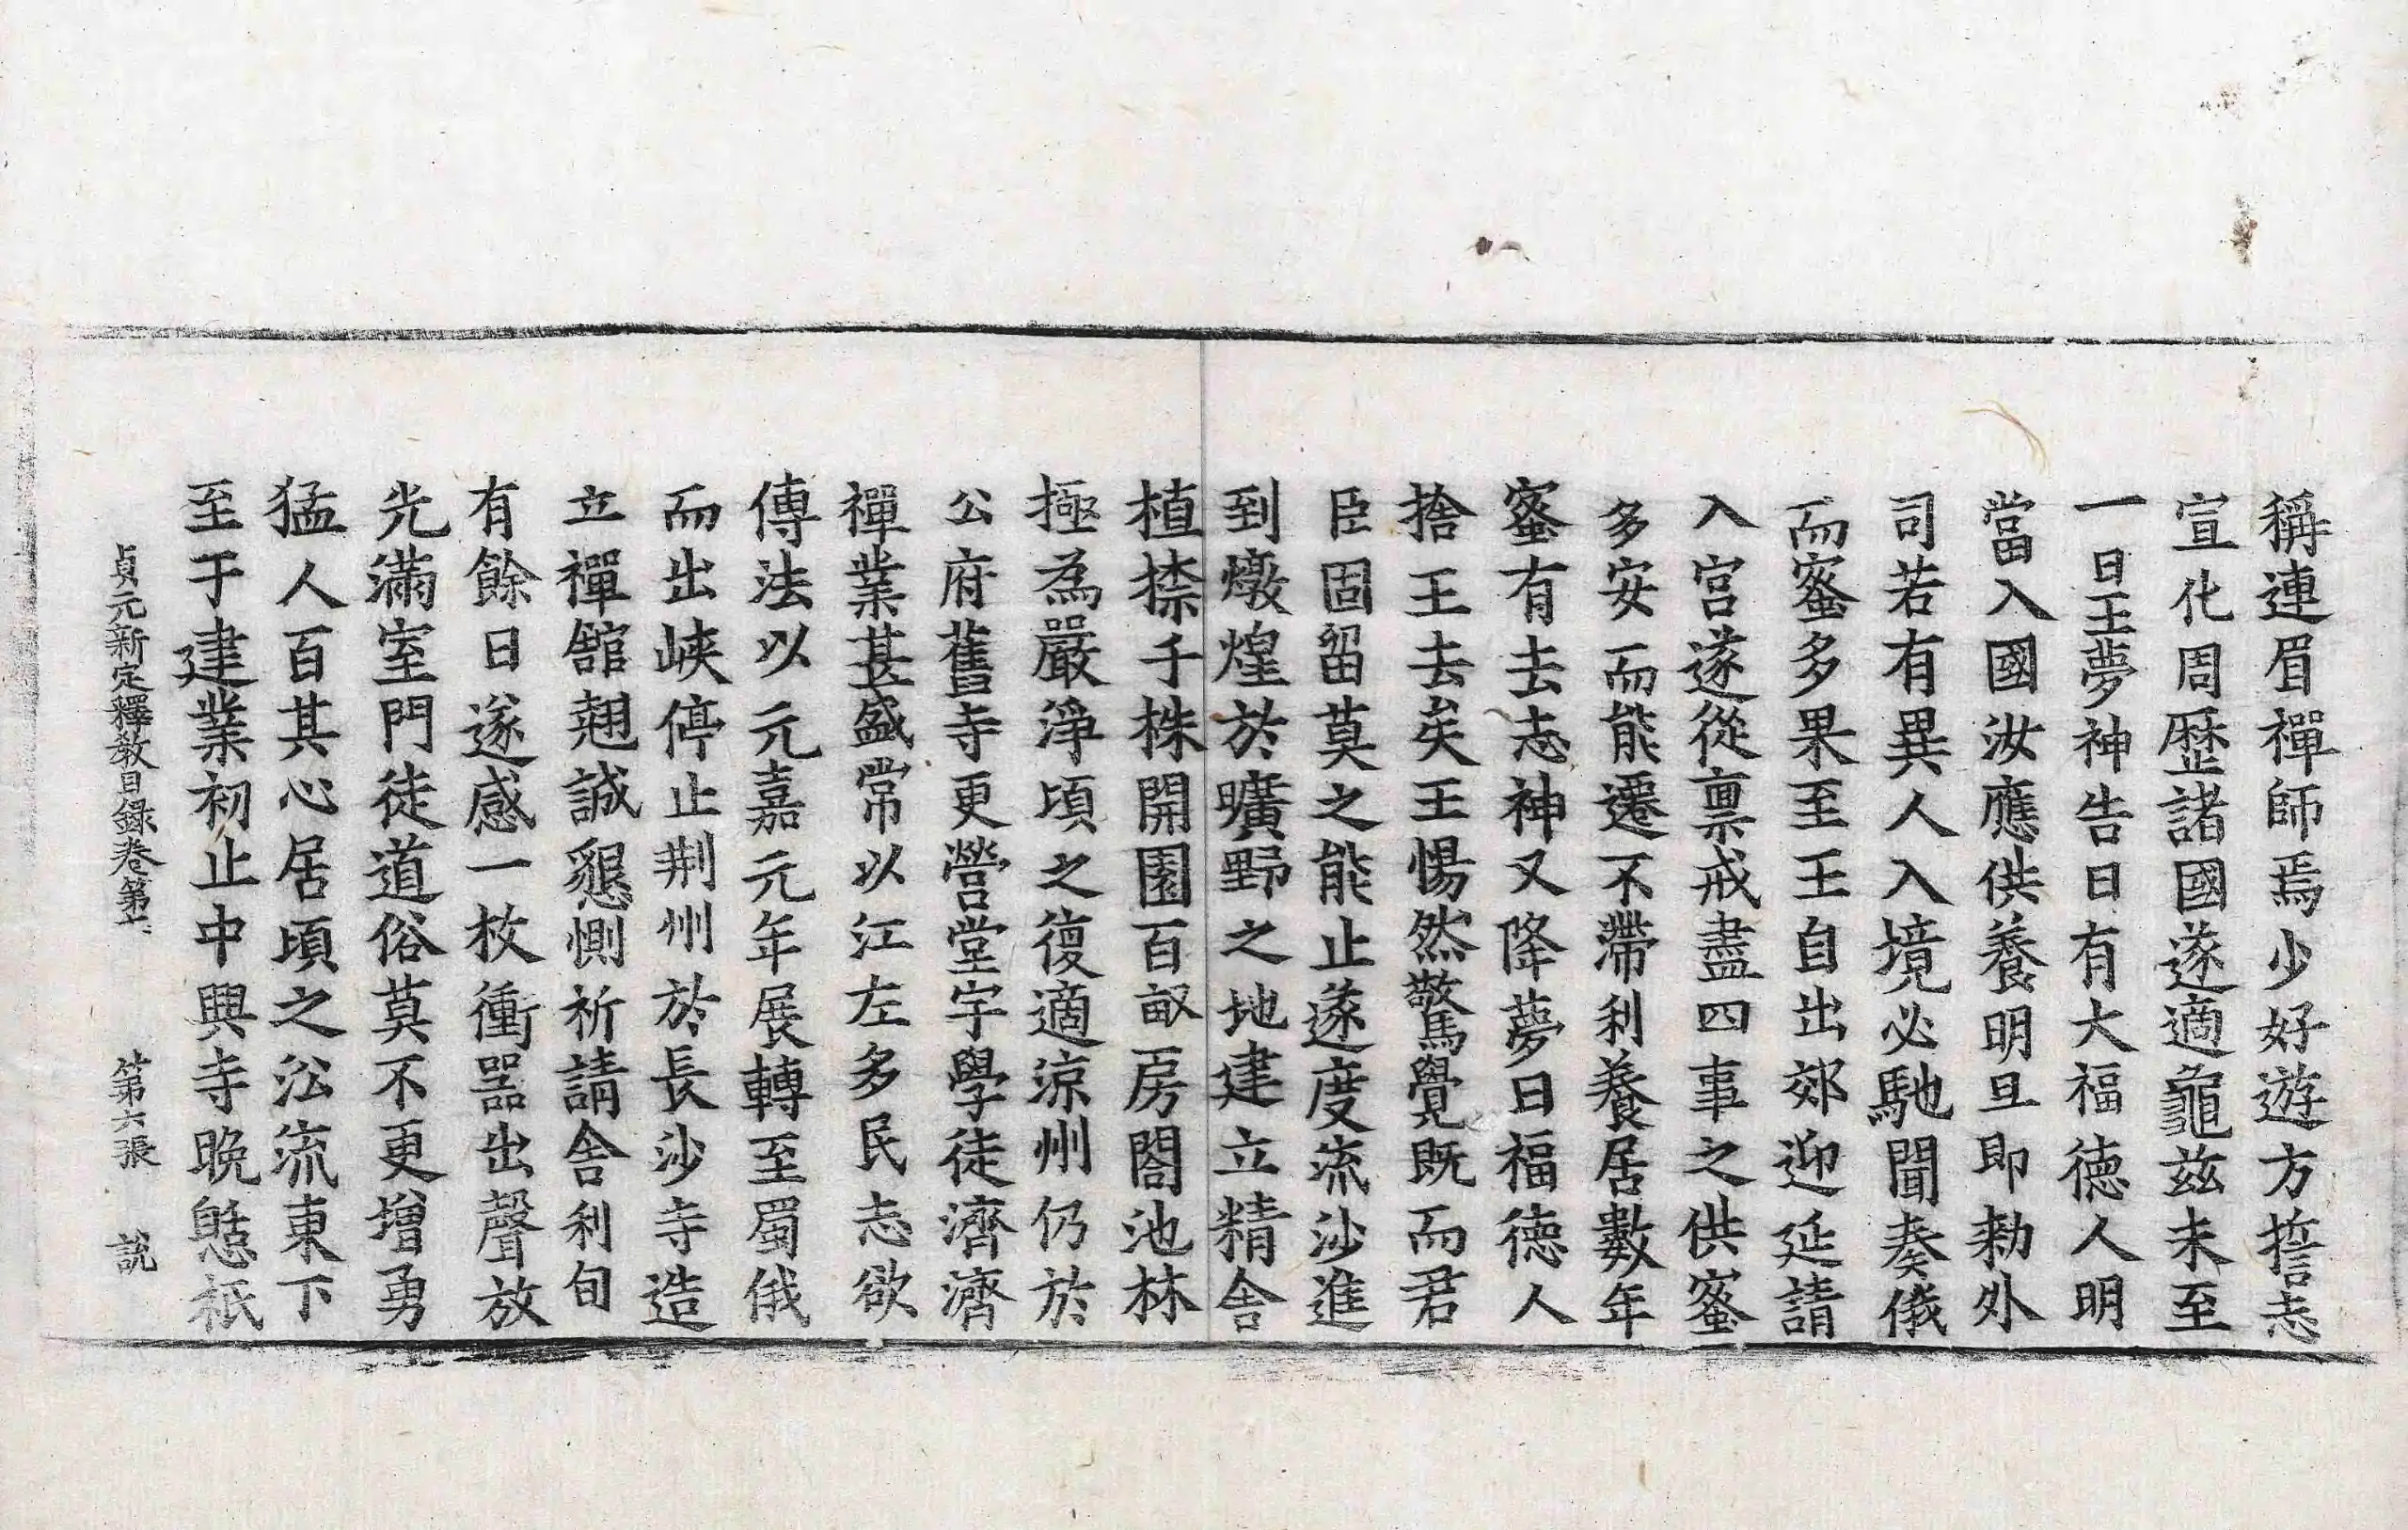 稱連眉禪師焉少好遊方誓志
宣化周歷諸國遂適龜玆未至
一日王夢神告曰有大福德人明
當入國汝應供養明旦即勑外
司若有異人入境必馳聞奏儀
而蜜多果至王自出郊迎延請
入宮遂從禀戒盡四事之供蜜
多安而能遷不滯利養居數年
蜜有去志神又降夢曰福德人
捨王去矣王惕然驚覺既而君
臣固留莫之能止遂度流沙進
到燉煌於曠野之地建立精舍
植㮈千株開園百畝房閣池林
極爲嚴淨頃之復適涼州仍於
公府舊寺更營堂宇學徒濟濟
禪業甚盛常以江左多民志欲
傳法以元嘉元年展轉至蜀俄
而出峽停止荆州於長沙寺造
立禪舘翹誠懇惻祈請舍利旬
有餘日遂感一枚衝器出聲放
光滿室門徒道俗莫不更增勇
猛人百其心居頃之㳂流東下
至于建業初止中興寺晚憩祇
貞元新定釋教目録卷第六 第六張 說